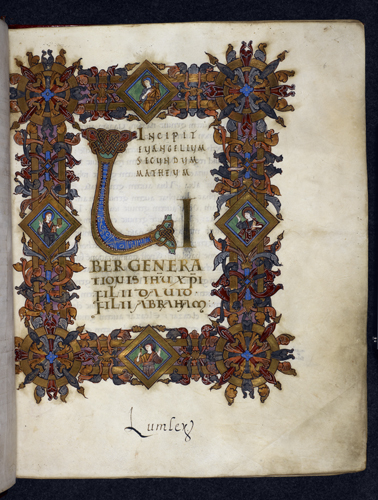 INCIPIT
EUANGELIUM
SECUNDUM
MATHEUM
LI
BERGENERA
TIONIS IHU XPI
FILII DAUID
FILII ABRAHAM
Lumley